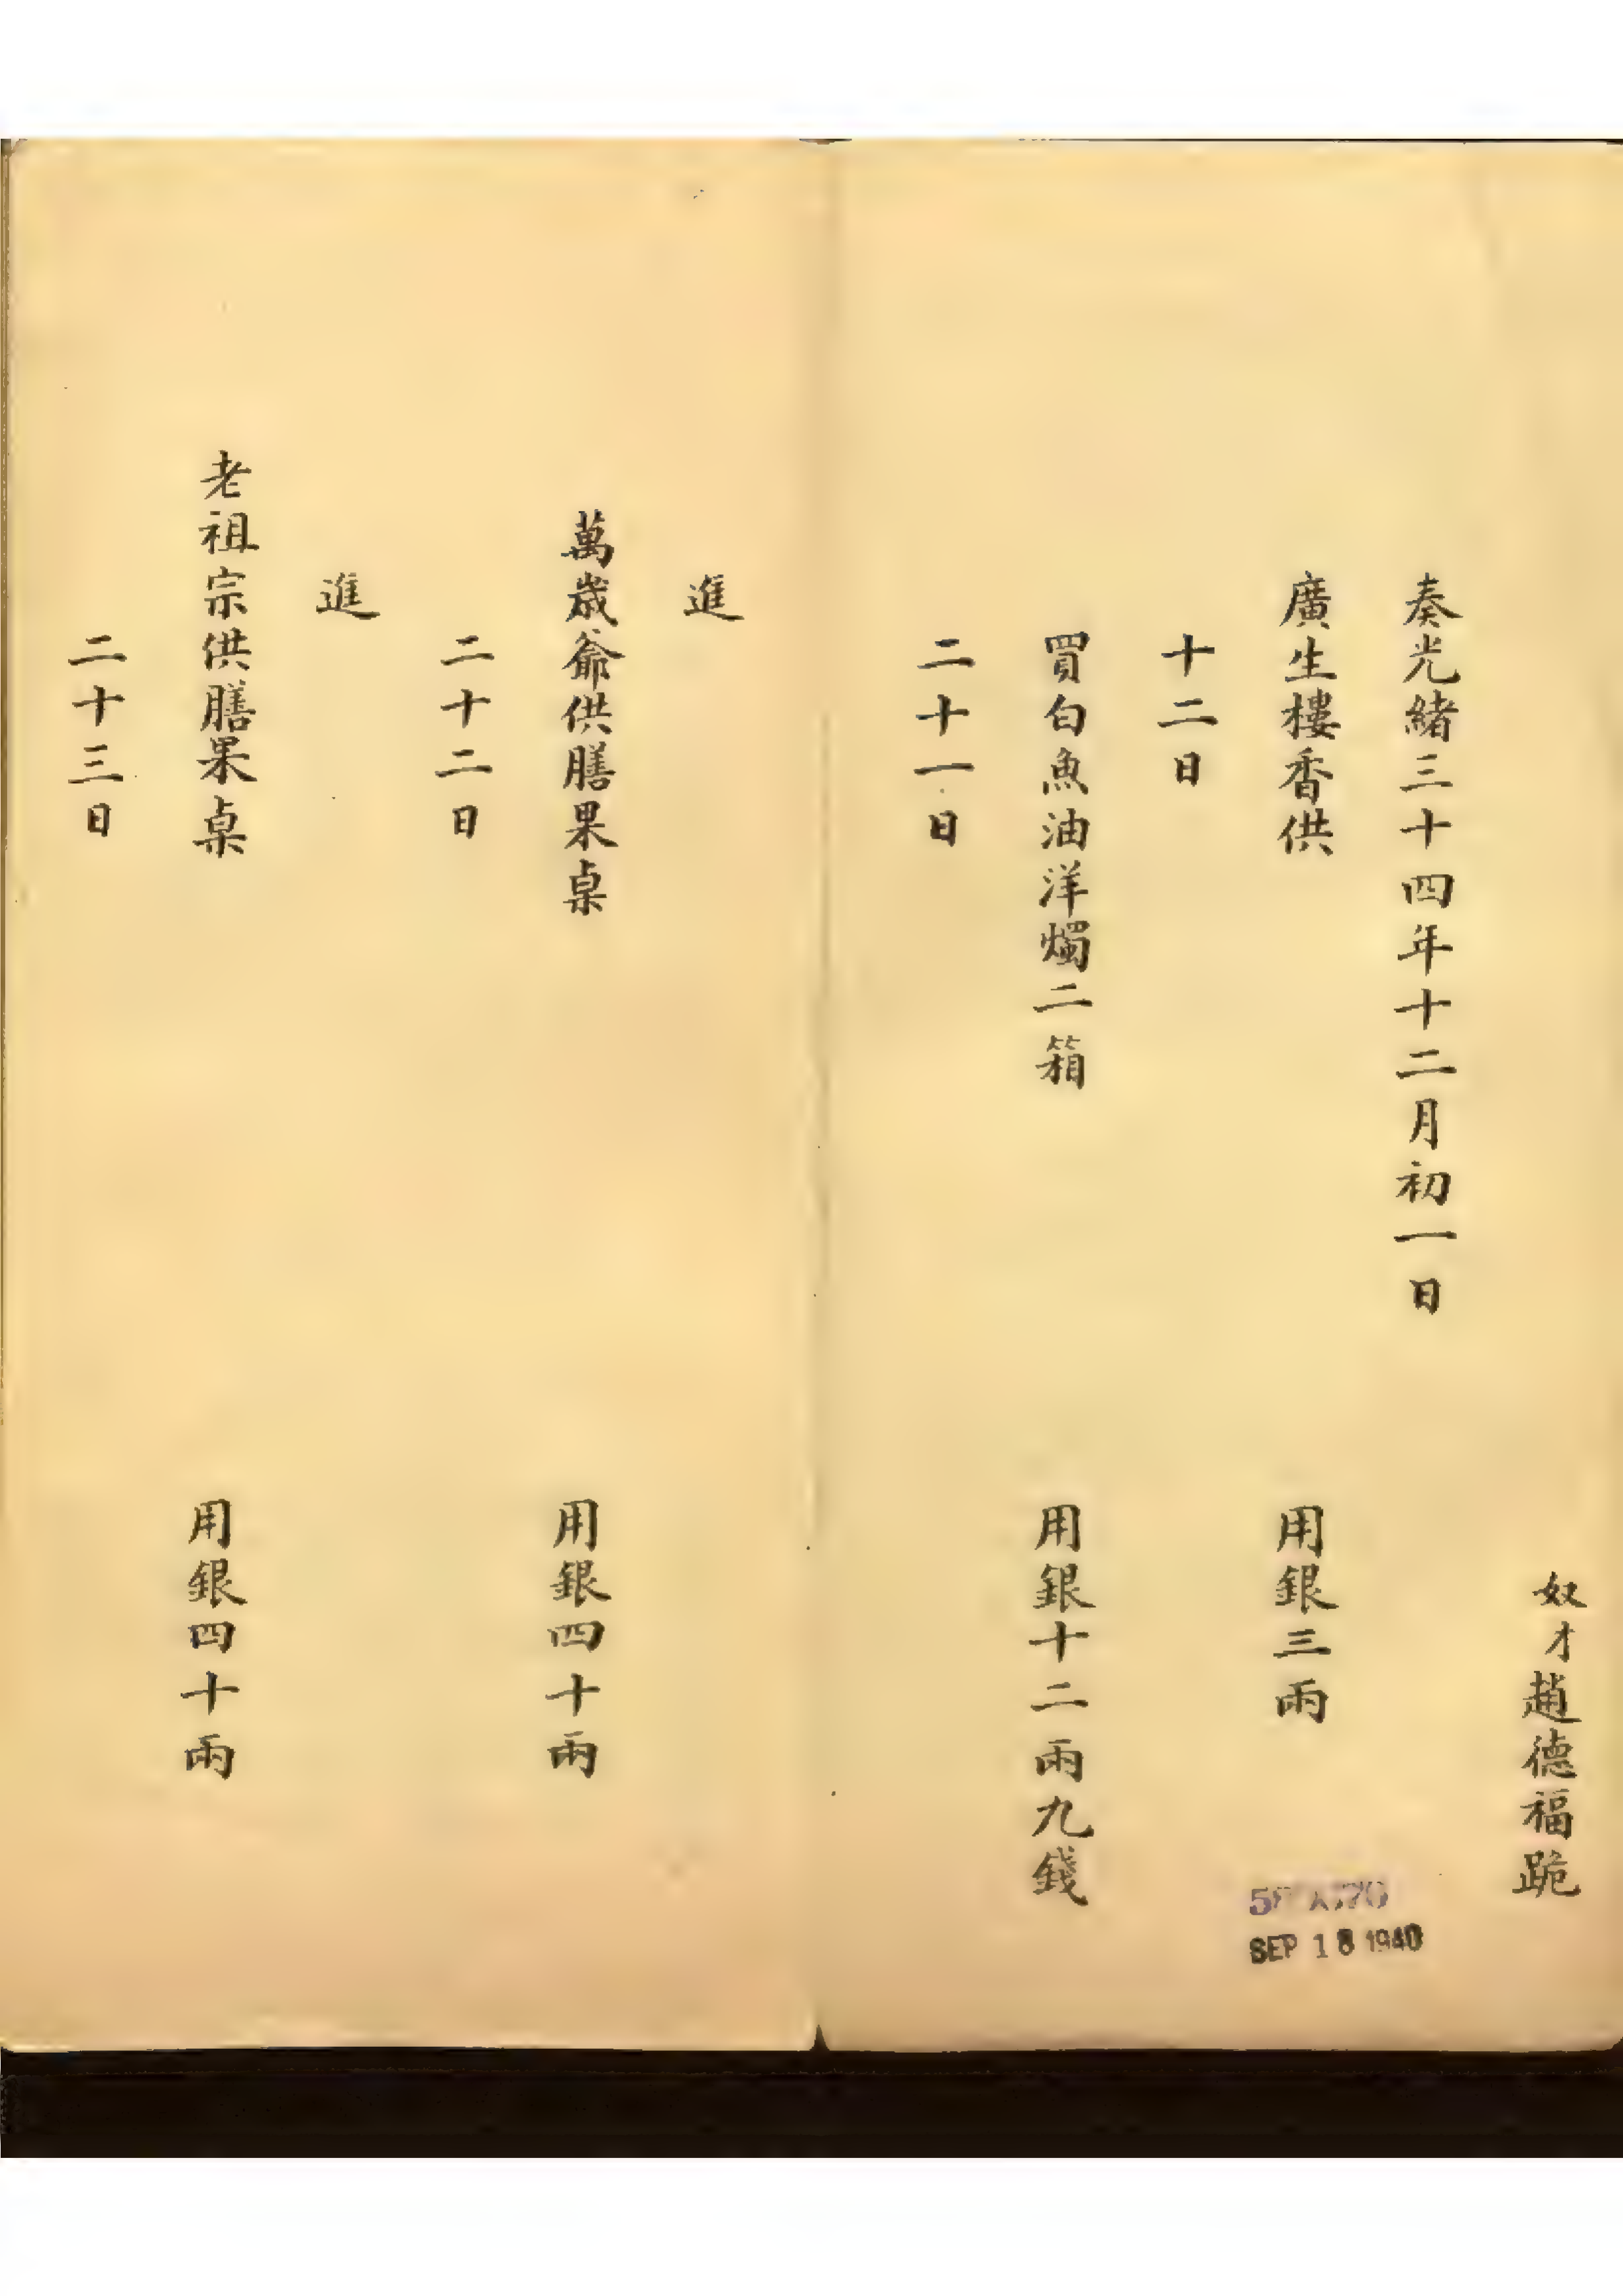 奴才趙德福跪
奏光緒三十四年十二月初一日
廣生樓香供 用銀三兩
十二日
買白魚油洋燭二箱 用銀十二兩九錢
二十一日
進
萬歲爺供膳果桌 用銀四十兩
二十二日
進
老祖宗供膳果桌 用銀四十兩
二十三日
SEP 18 1940